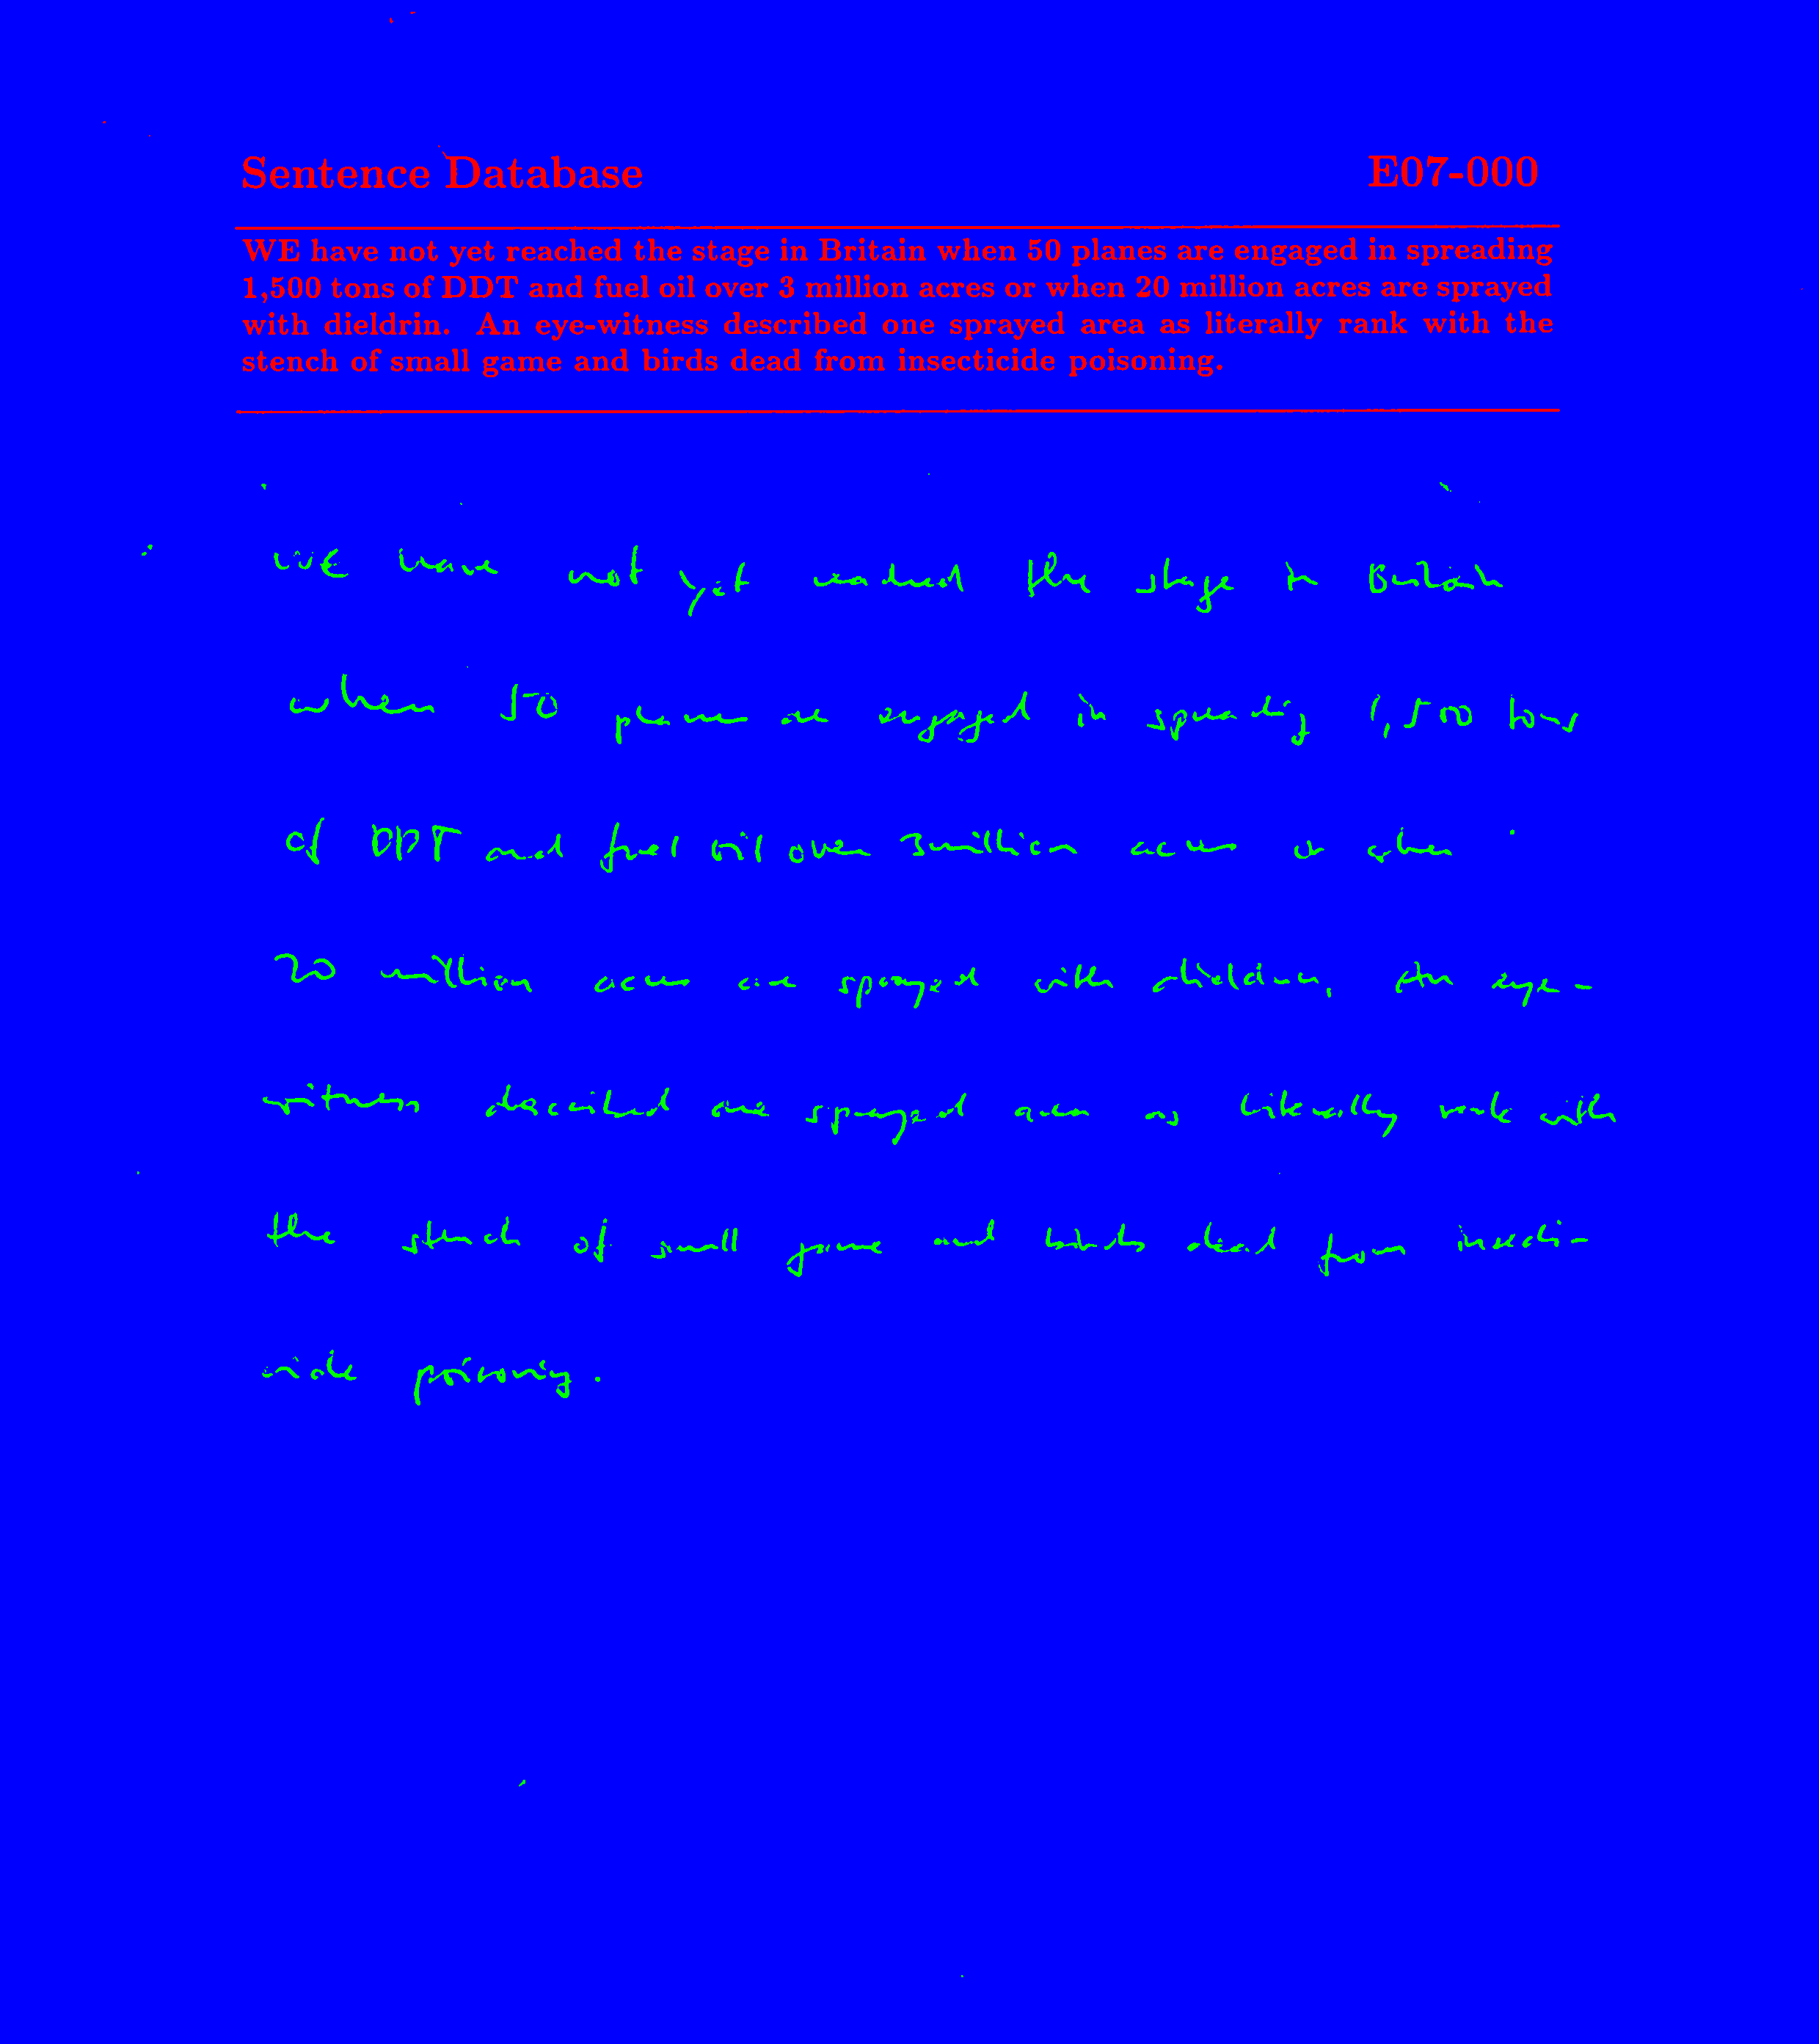 Sentence Database E07-000
WE have not yet reached the stage in Britain when 50 planes are engaged in spreading
1,500 tons of DDT and fuel oil over 3 million acres or when 20 million acres are sprayed
with dieldrin. An eye-witness described one sprayed area as literally rank with the
stench of small game and birds dead from insecticide poisoning.
WE have not yet reached the stage in Britain
when 50 planes are engaged in spreading 1,500 tons
of DDT and fuel oil over 3 million acres or when
20 million acres are sprayed with dieldrin. An eye-
witness described one sprayed area as literally rank with
the stench of small game and birds dead from insecti-
cide poisoning.